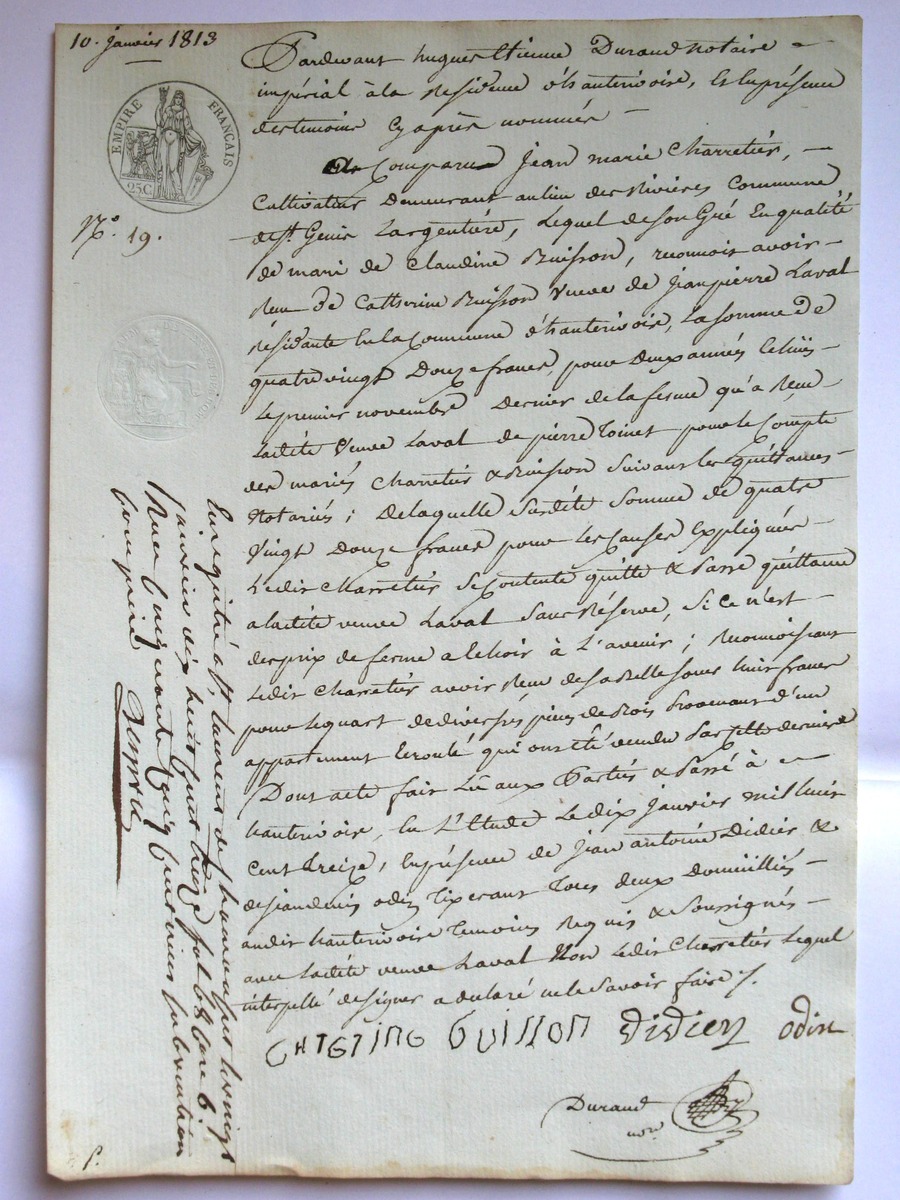 10. janvier 1813
EMPIRE FRANÇAIS
25 C.
N.° 19.
Pardevant hugues Etienne Durand notaire
impérial à la Residence d'hauterivoire, Et En présence
des temoins Cy après nommés
Comparu Jean marie Charretier,
Cultivateur demeurant au lieu des Rivières Commune
de St. Genis Largentière, Lequel de son Gré En qualité
de mari de Claudine Buisson, reconnoit avoir
Reçu de Catherine Buisson Veuve de Jean pierre Laval
résidante En la Commune d'hauterivoire, La somme de
quatre vingt Douze francs, pour Deux années Echües
Le premier novembre Dernier de la ferme qu'a Reçu
Ladite Veuve Laval de pierre Toinet pour le Compte
des mariés Charretier & Buisson Suivant les quittances
Notariés ; De laquelle Susdite Somme de quatre
Vingt Douze francs pour les Causes Expliquées
Ledit Charretier Se Contente quitte & Passe quittance
a ladite veuve Laval Sans Réserve, Si ce n'est
des prix de ferme a Echoir à L'avenir ; Reconnoissant
Ledit Charretier avoir Reçu de sa Belle soeur huit francs
pour le quart de diverses pièces de Bois Provenant d'un
appartement Ecroulé qui ont Eté vendu Par cette derniere
Dont acte fait Lü aux Parties & Passé à
hauterivoire, En L'Etude Le dix janvier mil huit
Cent treize, En présence de jean antoine Didier &
de jean denis odin Tixerant Tous deux Domiciliés
audit hauterivoire Temoins Requis & Soussignés
avec Ladite veuve Laval Non Ledit Charretier Lequel
interpellé de signer a declaré ne le Savoir faire /.
CATERINE BUISSON Didier odin
Durand
nore
Enregistré à St. Laurent de Chamousset le vingt
janvier dix huit cent treize fol. 68 Case 6.
Reçu cinquante cinq centimes subvention
comprise